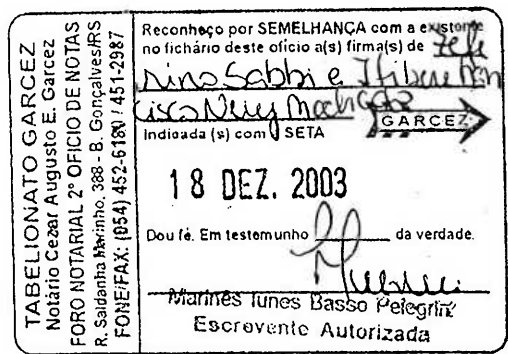 TABELIONATO GARCEZ
Notário Cezar Augusto E. Garcez
FORO NOTARIAL 2º OFICIO DE NOTAS
R. Saldanha Marinho, 388 - B. Gonçalves/RS
FONE/FAX: (054) 452-6180 / 451-2987
Reconheço por SEMELHANÇA com a existente
no fichário deste ofício a(s) firma(s) de Zefe
rino Sabbi e
cisco Nery Machado
GARCEZ
Indicada (s) com SETA
18 DEZ. 2003
Dou fé. Em testemunho da verdade.
Marines Iunes Basso Pelegrini
Escrevente Autorizada